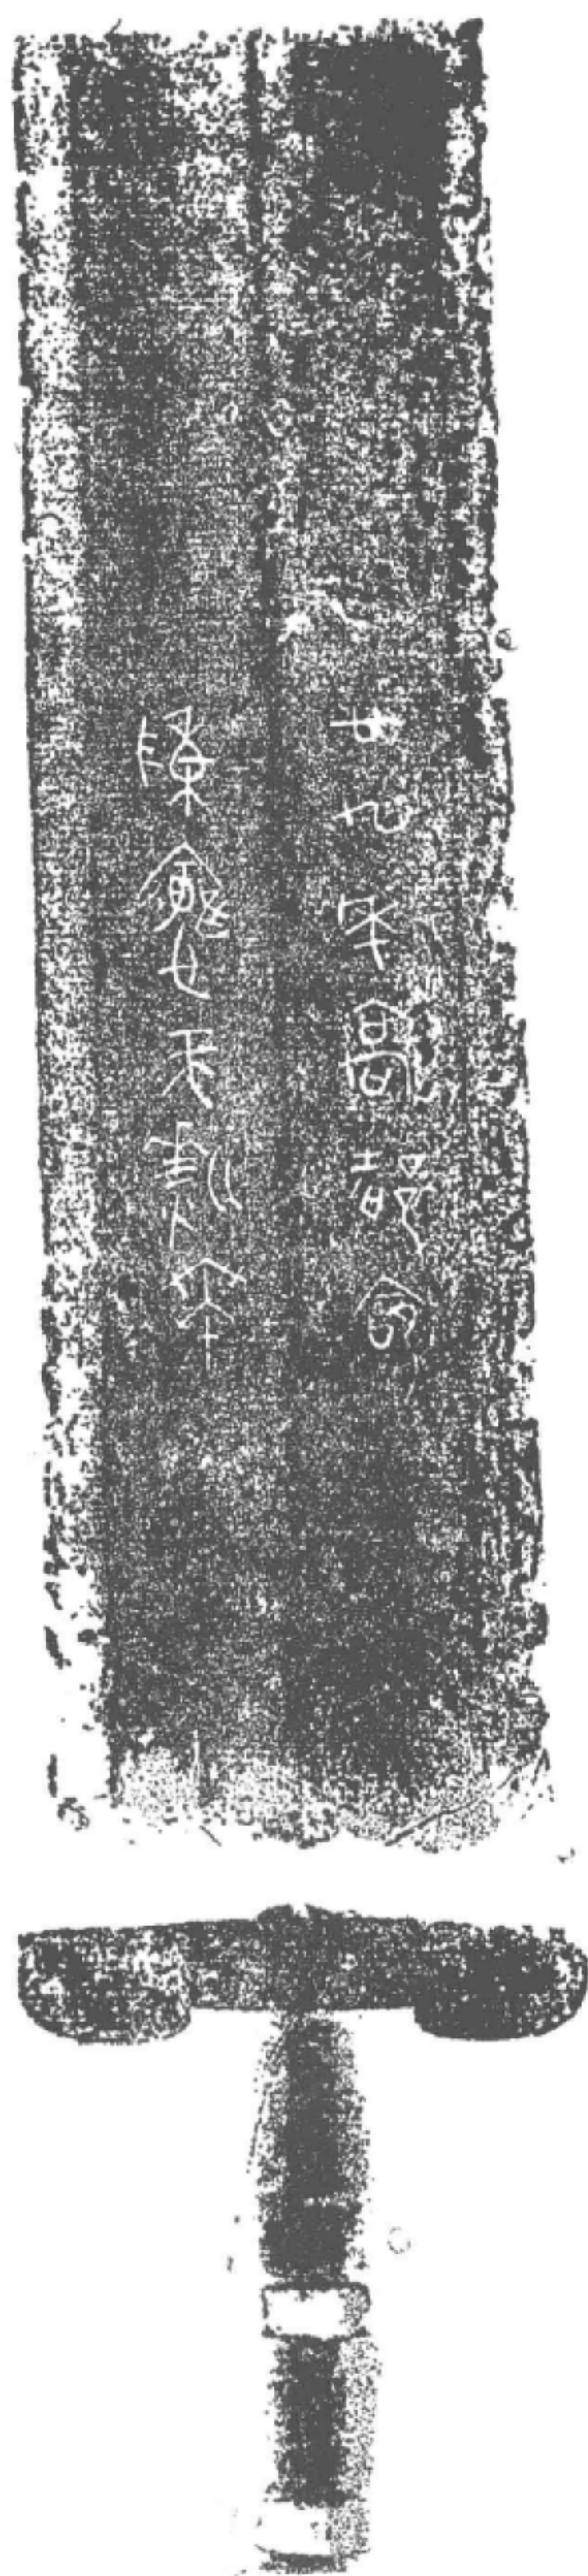 廿九年高都命
陳愈工帀